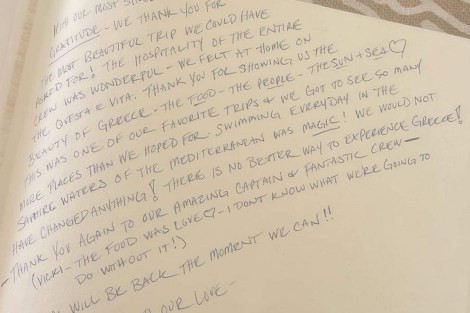 WITH OUR MOST SINCERE
GRATITUDE - WE THANK YOU FOR
THE MOST BEAUTIFUL TRIP WE COULD HAVE
ASKED FOR! THE HOSPITALITY OF THE ENTIRE
CREW WAS WONDERFUL - WE FELT AT HOME ON
THE QUESTA E VITA. THANK YOU FOR SHOWING US THE
BEAUTY OF GREECE - THE FOOD - THE PEOPLE - THE SUN + SEA ♡
THIS WAS ONE OF OUR FAVORITE TRIPS & WE GOT TO SEE SO MANY
MORE PLACES THAN WE HOPED FOR. SWIMMING EVERYDAY IN THE
WATERS OF THE MEDITERRANEAN WAS MAGIC! WE WOULD NOT
HAVE CHANGED ANYTHING! THERE IS NO BETTER WAY TO EXPERIENCE GREECE!
- THANK YOU AGAIN TO OUR AMAZING CAPTAIN & FANTASTIC CREW -
(VICKI - THE FOOD WAS LOVE ♡ - I DONT KNOW WHAT WE'RE GOING TO
DO WITHOUT IT!)
WILL BE BACK THE MOMENT WE CAN!!
OUR LOVE -